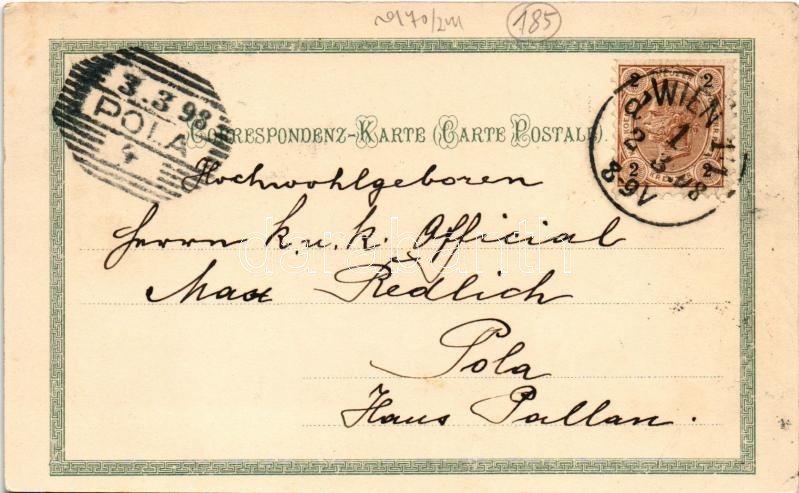 185
3.3.98
POLA
4
CORRESPONDENZ-KARTE (CARTE POSTALE)
2 2
2 2
WIEN 1/1
1
3 98
8-9V
Hochwohlgeboren
Herrn k. u. k. Official
Max Redlich
Pola
Haus Pallan.
darabanth